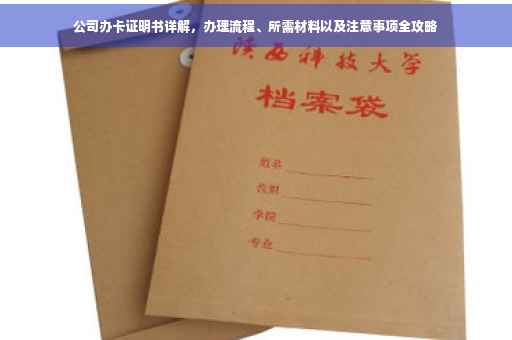 公司办卡证明书详解，办理流程、所需材料以及注意事项全攻略
陕西科技大学
档案袋
姓名
学院
专业